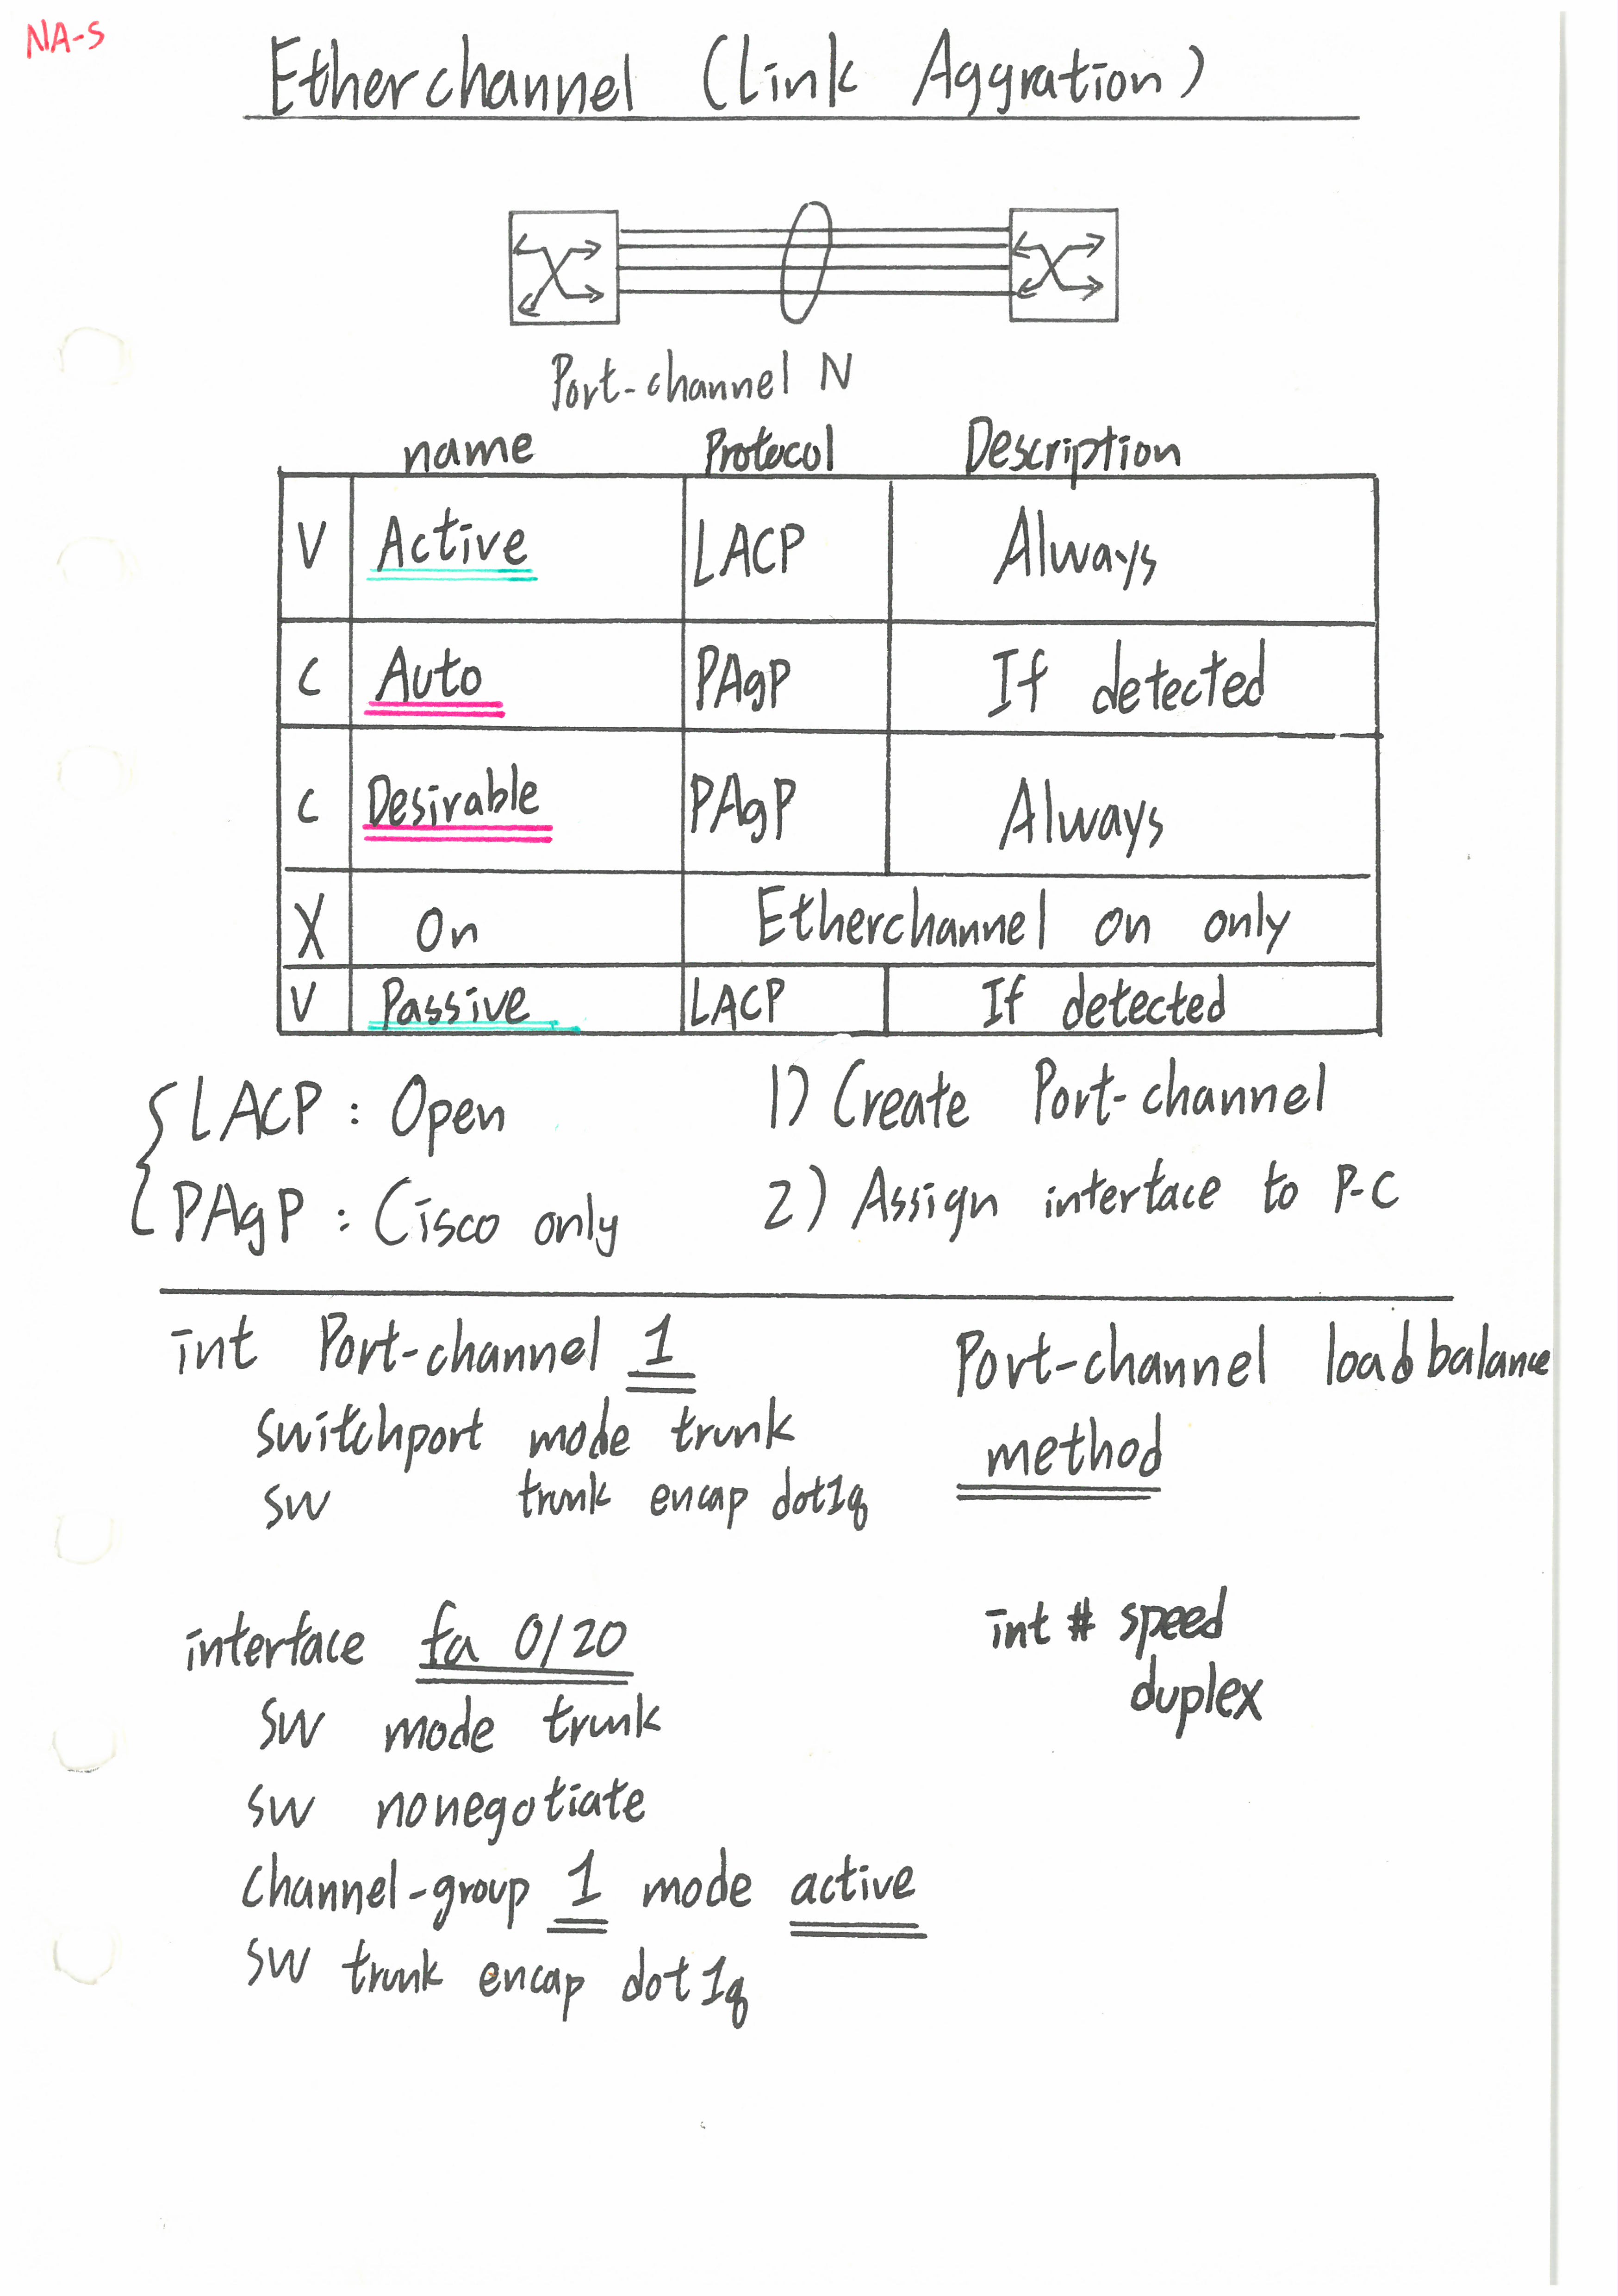 NA-S
Etherchannel (Link Aggration)
Port-channel N
name Protocol Description
V Active LACP Always
C Auto PAgP If detected
C Desirable PAgP Always
X On Etherchannel on only
V Passive LACP If detected
LACP : Open
PAgP : Cisco only
1) Create Port-channel
2) Assign interface to P-C
int Port-channel 1
switchport mode trunk
sw trunk encap dot1q
Port-channel load balance
method
interface fa 0/20
sw mode trunk
sw nonegotiate
channel-group 1 mode active
sw trunk encap dot1q
int # speed
duplex